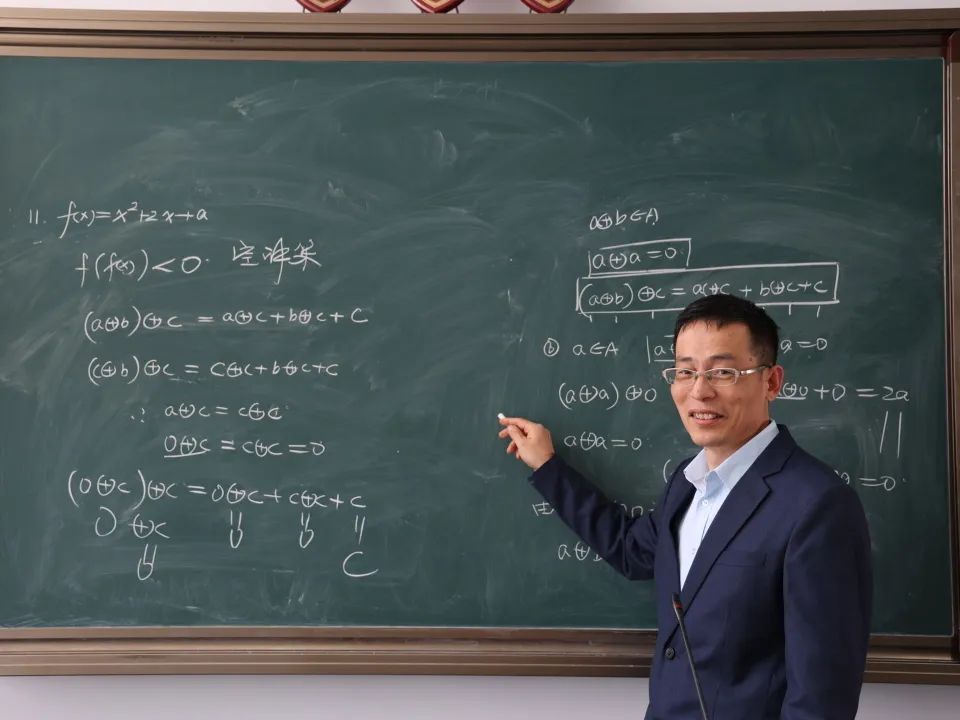 11. f(x)=x²+2x+a
f(f(x))<0. 空冲案
(a⊕b)⊕c = a⊕c+b⊕c+c
(c⊕b)⊕c = c⊕c+b⊕c+c
∴ a⊕c = c⊕c
0⊕c = c⊕c = 0
(0⊕c)⊕c = 0⊕c+c⊕c+c
0 ⊕c || || ||
|| 0 0 C
0
a⊕b∈A
a⊕a=0
(a⊕b)⊕c = a⊕c + b⊕c+c
⑥ a∈A a=0
(a⊕a)⊕0 ⊕0+0 = 2a
||
a⊕a=0
=0.
a⊕